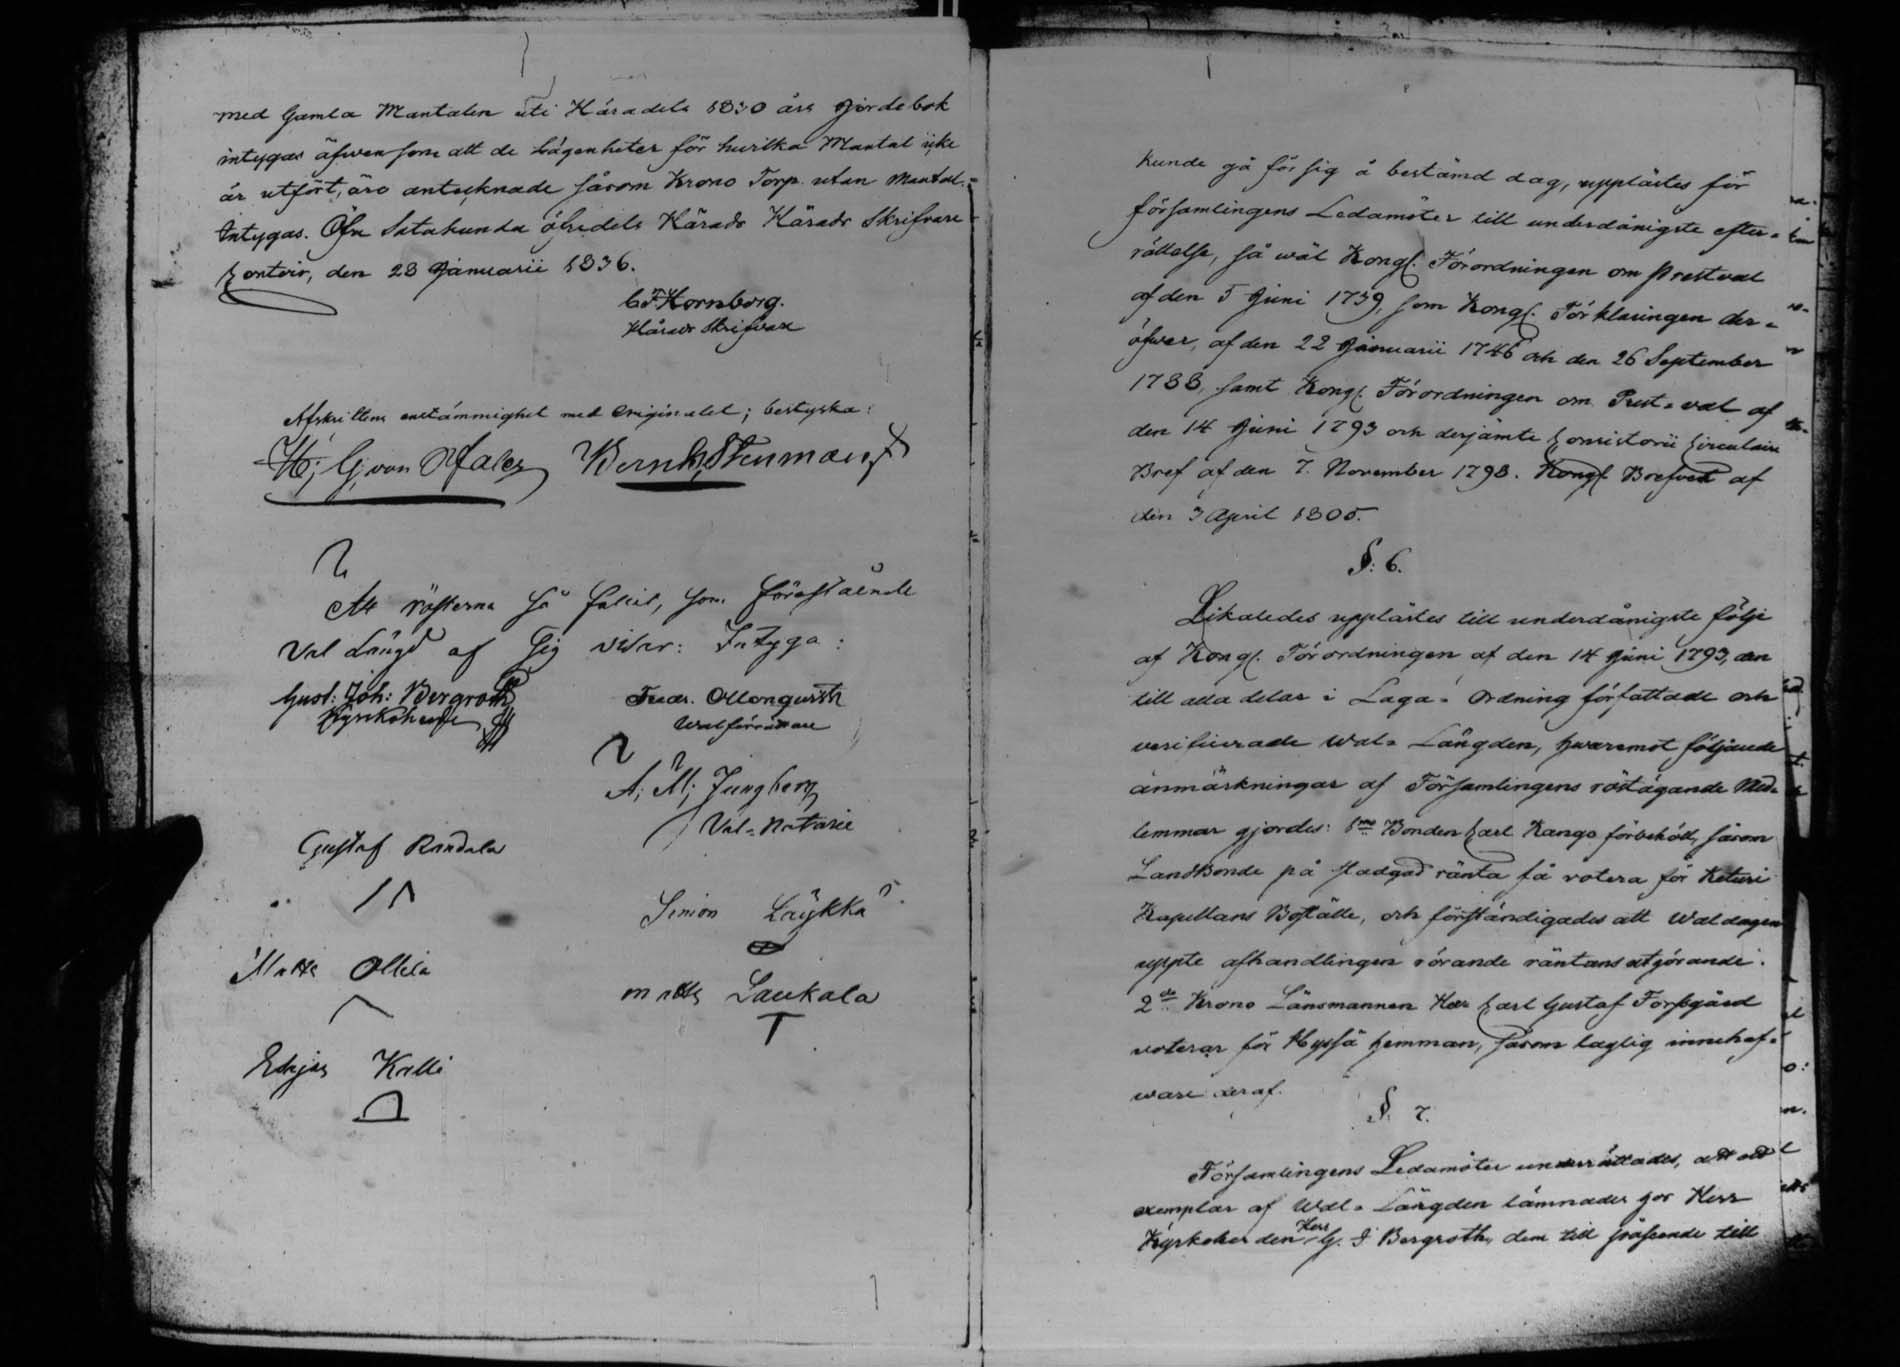 med Gamla Mantalen uti Häradets 1830 års Jordebok
intygas äfwensom att de Lägenheter för hwilka Mantal icke
är utfört, äro antecknade såsom Krono Torp utan Mantal.
Intygas. Öfre Satakunda öfredels Härads Härads Skrifvare
Contoir, den 28 Januarii 1836.
C F Kornborg.
Härads Skrifvare
Afskriftens enstämmighet med Originalet; bestyrka:
H; G; von Pfaler Bernh. Stenman
Att rösterna så fallit, som föreståënde
Val Längd af Sig visar: Intyga:
Gust: Joh: Bergroth Fredr. Ollonqvist
Kyrkoherde Walförrättare
A; M; Ljungberg
Val-Notarie
Gustaf Randala
Simon Löykkä
Matts Ollila
Matts Laukala
Eskjas Kalli
kunde gå för sig å bestämd dag, upplästes för
församlingens Ledamöter till underdånigste efter-
rättelse, så wäl Kongl. Förordningen om Prestval
af den 5 Juni 1739, som Kongl. Förklaringen der-
öfwer, af den 22 Januarii 1746 och den 26 September
1783, samt Kongl. Förordningen om Prest-val af
den 14 Juni 1793 och derjämte Consistorii Circulaire
Bref af den 7. November 1793. Kongl. Brefvet af
den 3 April 1805.
§: 6.
Likaledes upplästes till underdånigste följe
af Kongl. Förordningen af den 14 Juni 1793, den
till alla delar i Laga-Ordning författade och
verificerade Wal-Längden, hwaremot följande
anmärkningar af Församlingens röstägande Med-
lemmar gjordes: 1mo Bonden Carl Kango förbehöll, såsom
Landbonde på stadgad ränta få votera för Keturi
Kapellans Boställe, och förständigades att Waldagen
uppte afhandlingen rörande räntans utgörande.
2do Krono Länsmannen Herr Carl Gustaf Forsgård
voterar för Hyssä hemman, såsom laglig innehaf-
ware deraf.
§. 7.
Församlingens Ledamöter underrättades, att ett
exemplar af Wal-Längden lämnades hos Herr
Kyrkoherden Herr G. J Bergroth, dem till påseende till